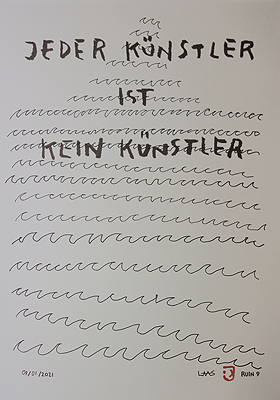 JEDER KÜNSTLER
IST
KEIN KÜNSTLER
09/01/2021
RUIN 9